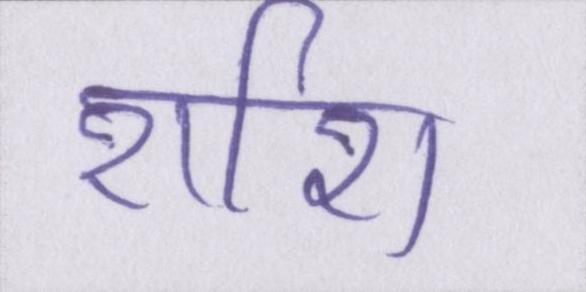 शशि